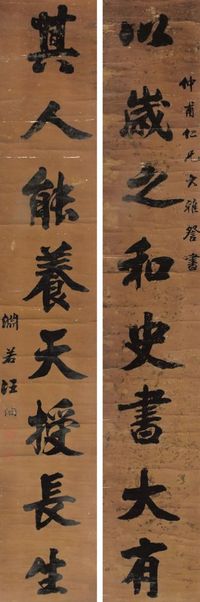 仲甫仁兄大雅詧書
以歲之和史書大有
其人能養天授長生
淵若汪洵